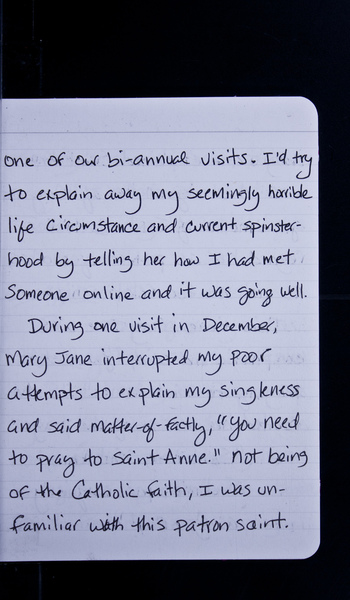 one of our bi-annual visits. I'd try
to explain away my seemingly horrible
life circumstance and current spinster-
hood by telling her how I had met
someone online and it was going well.
During one visit in December,
Mary Jane interrupted my poor
attempts to explain my singleness
and said matter-of-factly, "You need
to pray to Saint Anne." not being
of the Catholic faith, I was un-
familiar with this patron saint.